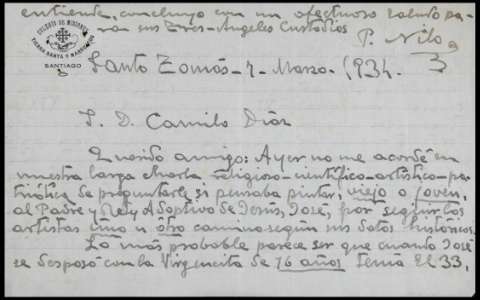 entiende, concluyo con un afectuoso saludo pa-
ra sus Tres-Angeles Custodios
P. Nilo,
3
COLEGIO DE MISIONES
TIERRA SANTA Y MARRUECOS
SANTIAGO
Santo Tomás - 7 - Marzo - 1934.
S. D. Camilo Díaz
Querido amigo: Ayer, no me acordé en
nuestra larga charla religioso-científico-artístico-pa-
triótica de preguntarle si pensaba pintar, viejo o joven,
al Padre y Rey Adoptivo de Jesús, José, por seguir los
artistas uno u otro camino según sus datos históricos.
Lo más probable parece ser que cuando José
se desposó con la Virgencita de 16 años tenía El 33,